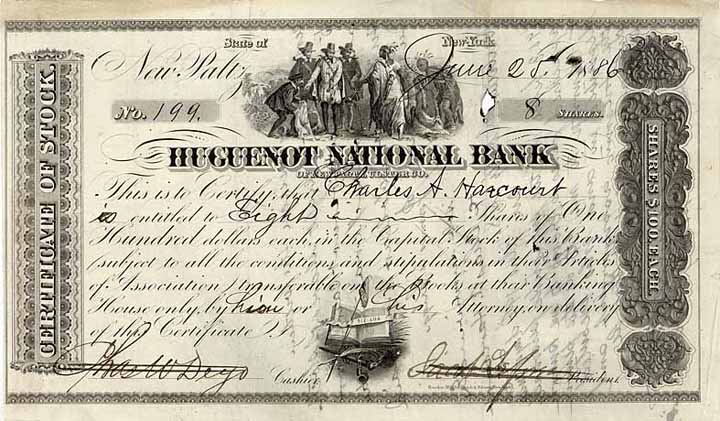 State of New York
New Paltz June 25 1886
No. 199. 8 SHARES.
HUGUENOT NATIONAL BANK
OF NEW PALTZ, ULSTER CO.
This is to Certify, that Charles A. Harcourt
is entitled to Eight Shares of One
Hundred dollars each, in the Capital Stock of this Bank
subject to all the conditions and stipulations in their Articles
of Association, transferable on the Books at their Banking
House only, by him or his Attorney, on delivery
of this Certificate
Chas W Deyo Cashier President.
CERTIFICATE OF STOCK.
SHARES $100 EACH.